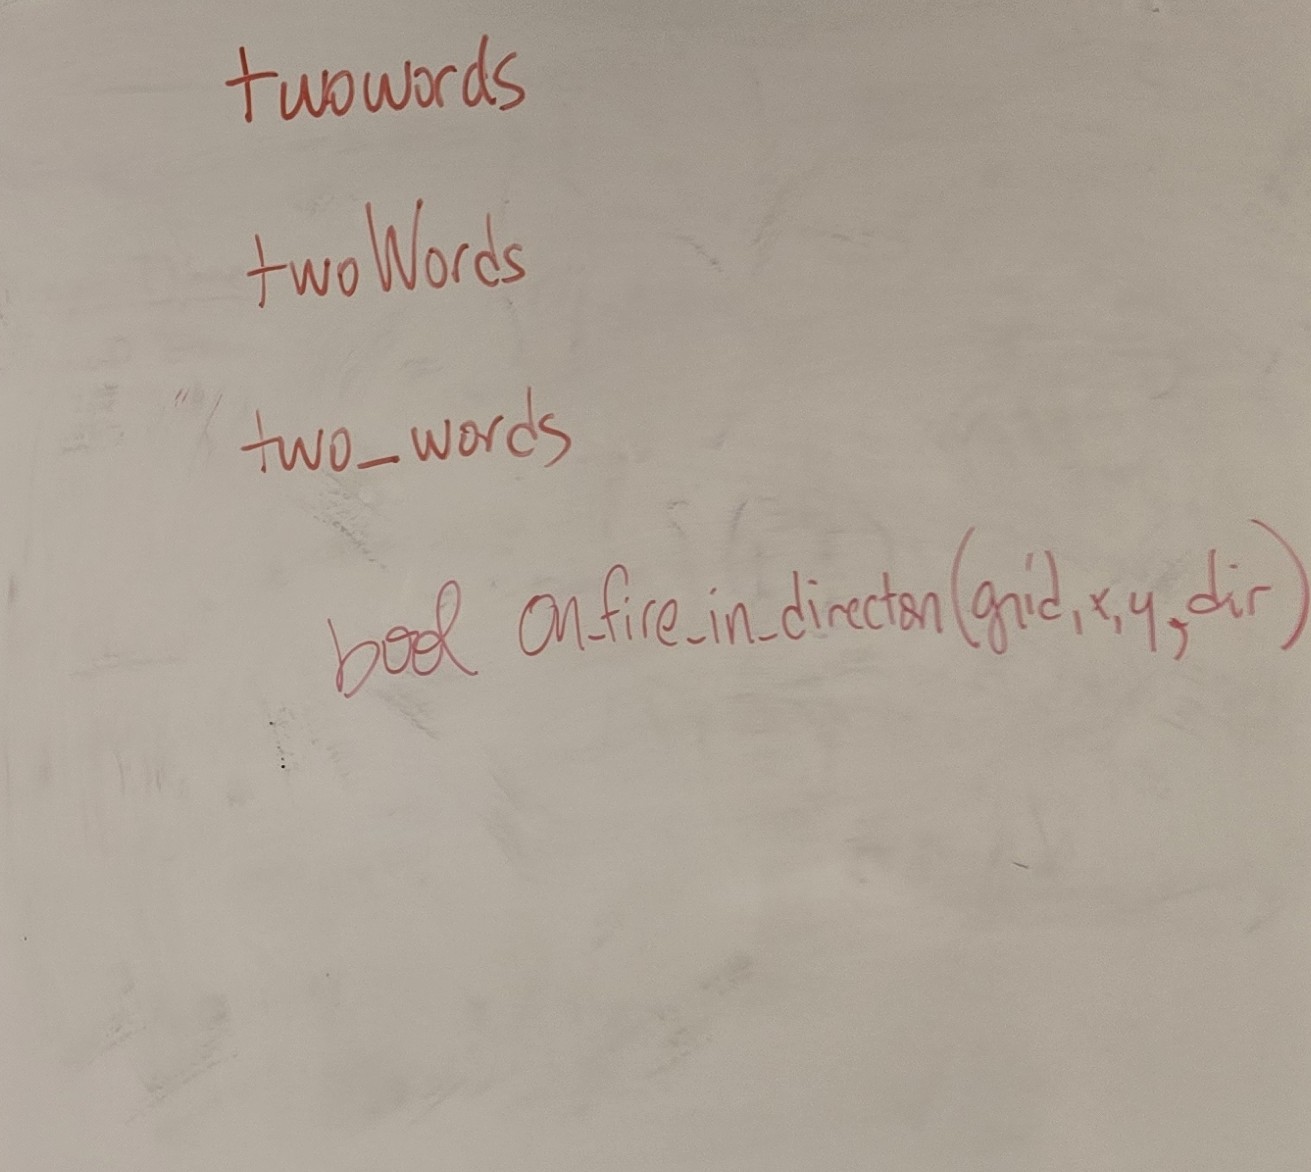 twowords
twoWords
two_words
bool on_fire_in_direction(grid,x,y,dir)